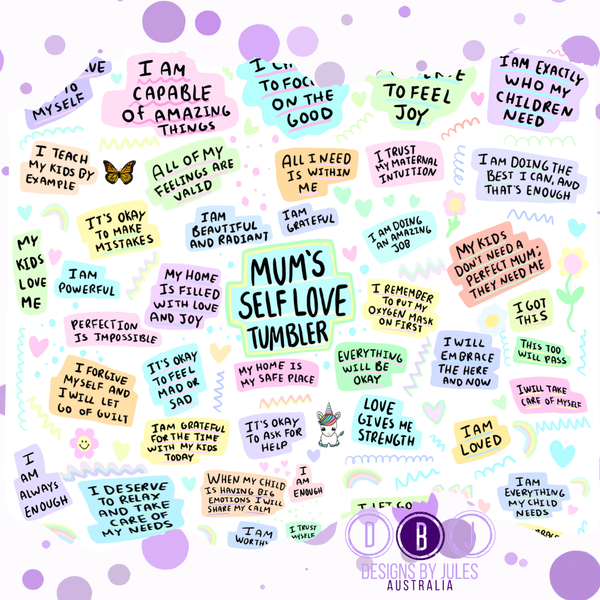 TO
MYSELF
I AM
CAPABLE
OF AMAZING
THINGS
TO FOCUS
ON THE
GOOD
TO FEEL
JOY
I AM EXACTLY
WHO MY
CHILDREN
NEED
I TEACH
MY KIDS BY
EXAMPLE
ALL OF MY
FEELINGS ARE
VALID
ALL I NEED
IS WITHIN
ME
I TRUST
MY MATERNAL
INTUITION
I AM DOING THE
BEST I CAN, AND
THAT'S ENOUGH
IT'S OKAY
TO MAKE
MISTAKES
I AM
BEAUTIFUL
AND RADIANT
I AM
GRATEFUL
I AM DOING
AN AMAZING
JOB
MY
KIDS
LOVE
ME
I AM
POWERFUL
MY HOME
IS FILLED
WITH LOVE
AND JOY
MUM'S
SELF LOVE
TUMBLER
MY KIDS
DON'T NEED A
PERFECT MUM;
THEY NEED ME
I REMEMBER
TO PUT MY
OXYGEN MASK
ON FIRST
I GOT
THIS
PERFECTION
IS IMPOSSIBLE
I FORGIVE
MYSELF AND
I WILL LET
GO OF GUILT
IT'S OKAY
TO FEEL
MAD OR
SAD
MY HOME IS
MY SAFE PLACE
EVERYTHING
WILL BE
OKAY
I WILL
EMBRACE
THE HERE
AND NOW
THIS TOO
WILL PASS
I WILL TAKE
CARE OF MYSELF
I AM GRATEFUL
FOR THE TIME
WITH MY KIDS
TODAY
IT'S OKAY
TO ASK FOR
HELP
LOVE
GIVES ME
STRENGTH
I AM
LOVED
I
AM
ALWAYS
ENOUGH
I DESERVE
TO RELAX
AND TAKE
CARE OF
MY NEEDS
WHEN MY CHILD
IS HAVING BIG
EMOTIONS I WILL
SHARE MY CALM
I
AM
ENOUGH
I AM
EVERYTHING
MY CHILD
NEEDS
I AM
I TRUST
MYSELF
I LET GO
D B J
DESIGNS BY JULES
AUSTRALIA